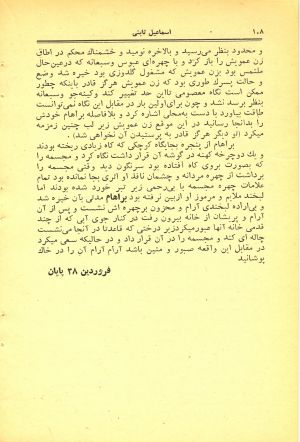 ۱۰۸ اسماعیل ثابتی
و محدود بنظر می‌رسید و بالاخره نومید و خشمناک محکم در اطاق
زن عمویش را باز کرد و با چهره‌ای عبوس و سبعانه که در عین‌حال
ملتمس بود بزن عمویش که مشغول گلدوزی بود خیره شد وضع
و حالت پسرك طوری بود که زن عمویش هرگز قادر باینکه چطور
ممکن است نگاه معصومی تا این حد تغییر کند و کینه‌جو و سبعانه
بنظر برسد نشد و چون برای‌اولین بار در مقابل این نگاه نمی‌توانست
طاقت بیاورد با دست به‌محلی اشاره کرد و بلافاصله براهام خودش
را بدانجا رسانید در این موقع زن عمویش زیر لب چنین زمزمه
میکرد (او دیگر هرگز قادر به پرستیدن آن نخواهی شد).
براهام از پنجره بجایگاه کوچکی که کاه زیادی ریخته بودند
و یك دوچرخه کهنه در گوشه آن قرار داشت نگاه کرد و مجسمه را
که بصورت بروی کاه افتاده بود سرنگون دید وقتی مجسمه را
برداشت از چهره مردانه و چشمان نافذ او اثری بجا نمانده بود تمام
علامات چهره مجسمه با بی‌رحمی زیر تبر خورد شده بودند اما
لبخند ملایم و مرموز او ازبین نرفته بود براهام مدتی بآن خیره شد
و بی‌اراده لبخندی آرام و محزون برچهره‌اش نشست و پس از آن
آرام و پریشان از خانه بیرون رفت در کنار جوی آبی که از چند
قدمی خانه آنها عبور میکرد زیر درختی که قاعدتا در آنجا می‌نشست
چاله ای کند و مجسمه را در آن قرار داد و در حالیکه سعی میکرد
در مقابل این واقعه صبور و متین باشد آرام آرام آن را در خاك
پوشانید
فروردین ۳۸ پایان